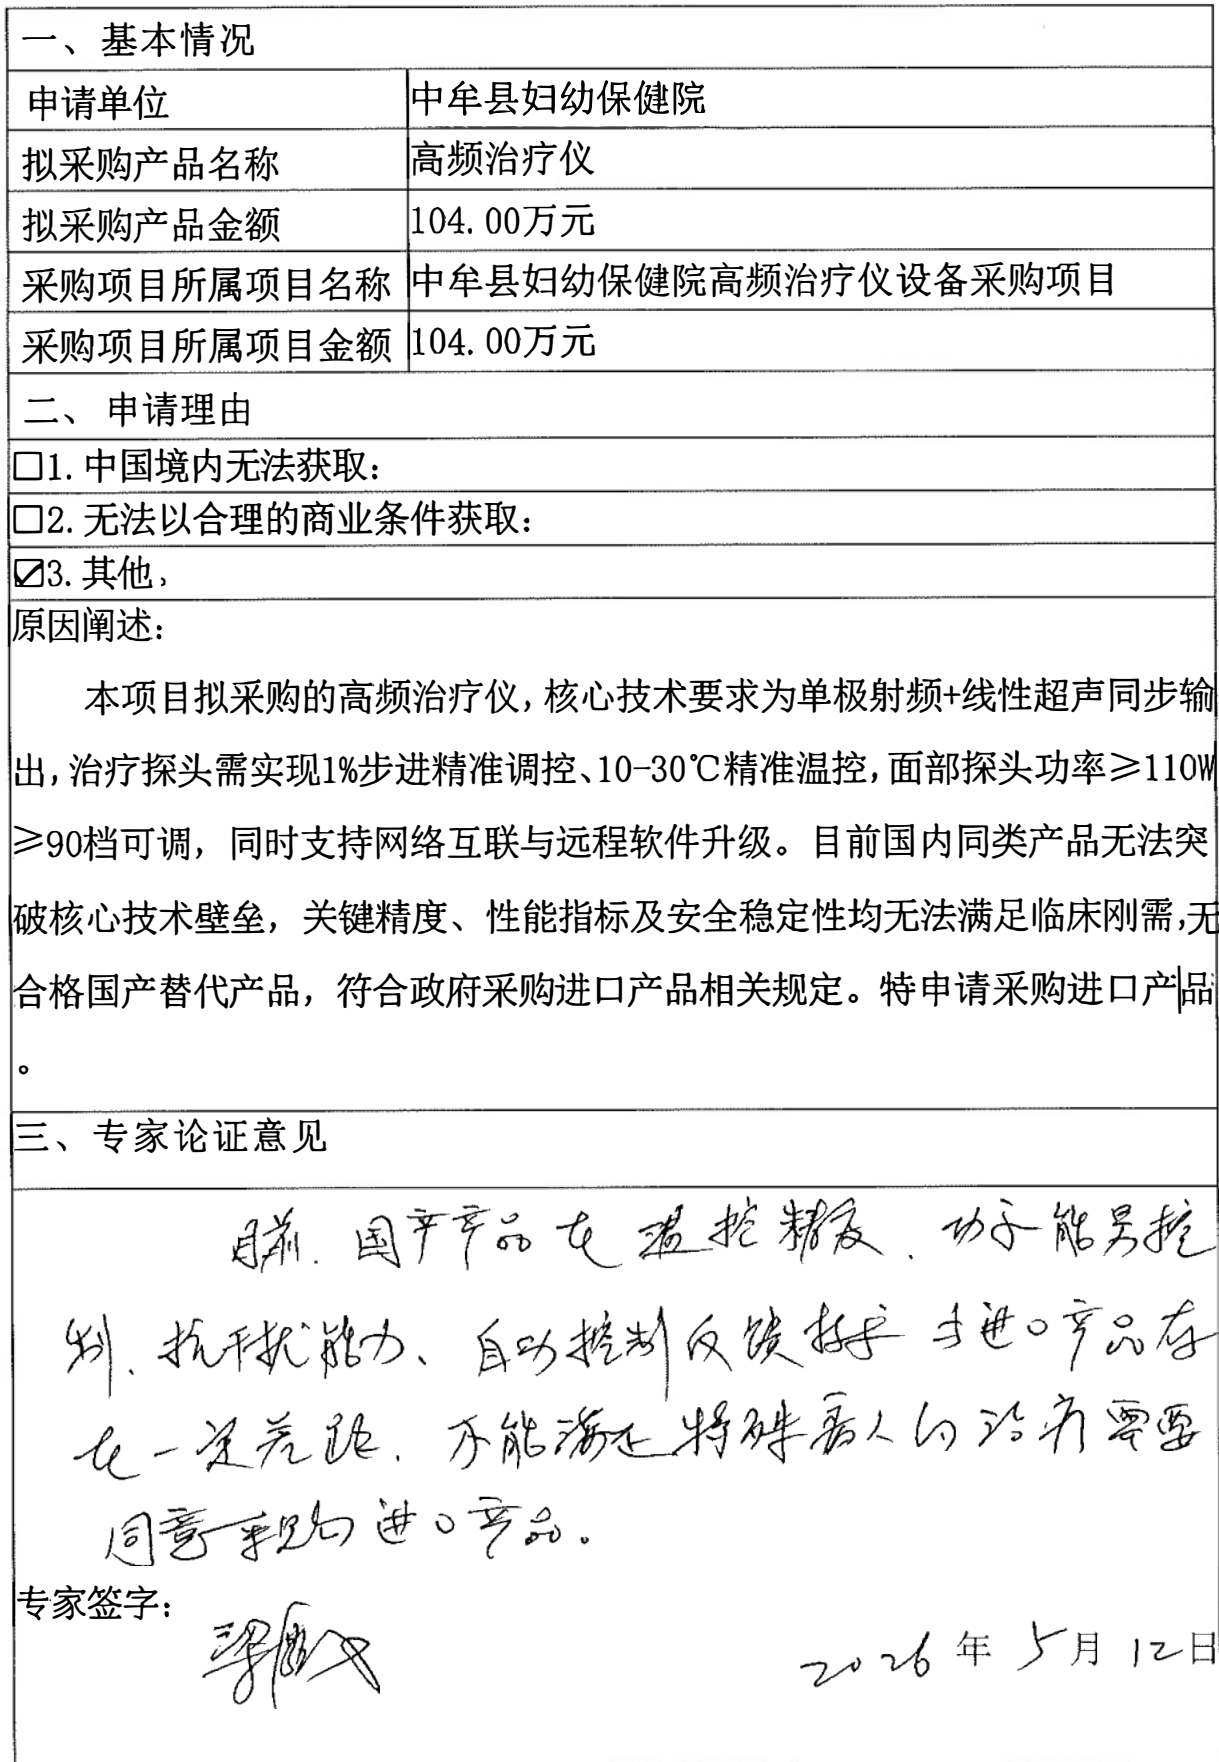 一、基本情况
申请单位 中牟县妇幼保健院
拟采购产品名称 高频治疗仪
拟采购产品金额 104.00万元
采购项目所属项目名称 中牟县妇幼保健院高频治疗仪设备采购项目
采购项目所属项目金额 104.00万元
二、 申请理由
☐1.中国境内无法获取:
☐2.无法以合理的商业条件获取:
☑3.其他,
原因阐述:
本项目拟采购的高频治疗仪,核心技术要求为单极射频+线性超声同步输
出,治疗探头需实现1%步进精准调控、10-30℃精准温控,面部探头功率≥110W
≥90档可调，同时支持网络互联与远程软件升级。目前国内同类产品无法突
破核心技术壁垒，关键精度、性能指标及安全稳定性均无法满足临床刚需,无
合格国产替代产品，符合政府采购进口产品相关规定。特申请采购进口产品
。
三、专家论证意见
目前.国产产品在温控精度、功率能量控
制、抗干扰能力、自动控制反馈技术与进口产品存
在一定差距.不能满足特殊病人的治疗需要
同意采购进口产品。
专家签字:
2026年5月12日